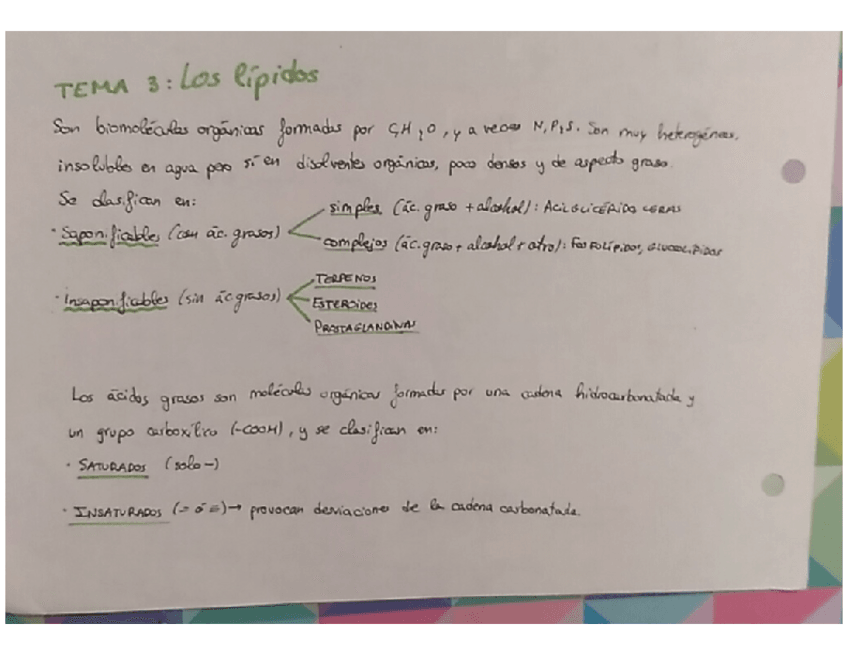 TEMA 3: Los lípidos
Son biomoléculas orgánicas formadas por C,H,O, y a veces N,P,S. Son muy heterogéneas,
insolubles en agua pero sí en disolventes orgánicos, poco densos y de aspecto graso.
Se clasifican en:
· Saponificables (con ác. grasos)
simples (ác. graso + alcohol): ACILGLICÉRIDO CERAS
complejos (ác. graso + alcohol + otro): FOSFOLÍPIDOS, GLUCOLIPIDOS
· Insaponificables (sin ác grasos)
TERPENOS
ESTEROIDES
PROSTAGLANDINAS
Los ácidos grasos son moléculas orgánicas formadas por una cadena hidrocarbonatada y
un grupo carboxílico (-COOH), y se clasifican en:
· SATURADOS (solo -)
· INSATURADOS (= ó ≡) → provocan desviaciones de la cadena carbonatada.